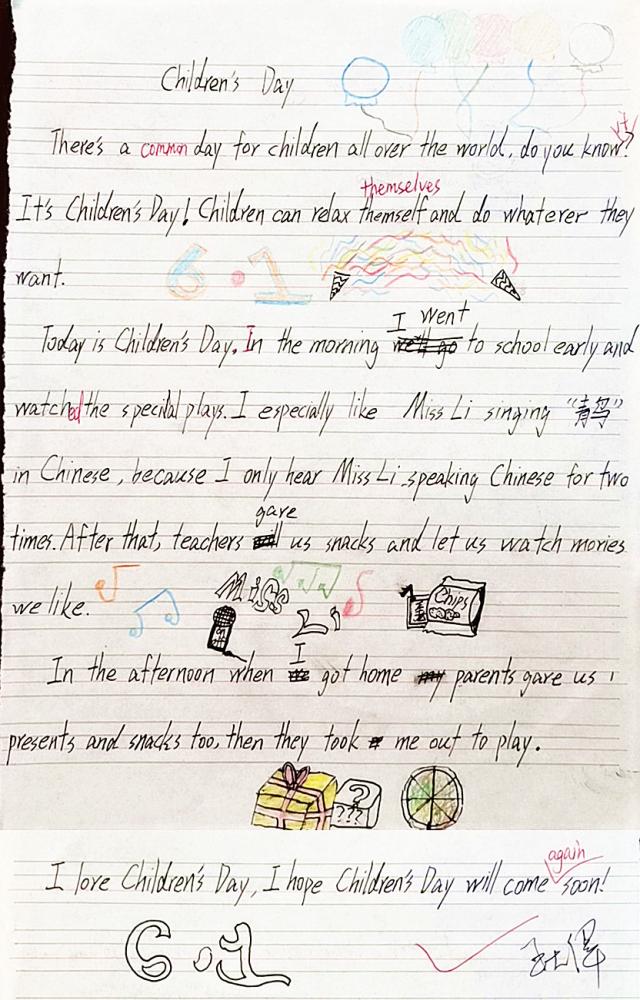 Children's Day
There's a common day for children all over the world, do you know it?
themselves
It's Children's Day! Children can relax themself and do whaterer they
6.1
want.
I went
Today is Children's Day. In the morning we'll go to school early and
watched the specital plays. I especially like Miss Li singing “青鸟”
in Chinese, because I only hear Miss Li speaking Chinese for two
gave
times. After that, teachers us snacks and let us watch mories
we like.
Miss Li
Chips
I
In the afternoon when got home my parents gave us
presents and snacks too, then they took me out to play.
? ???
again
I love Children's Day, I hope Children's Day will come soon!
6.1